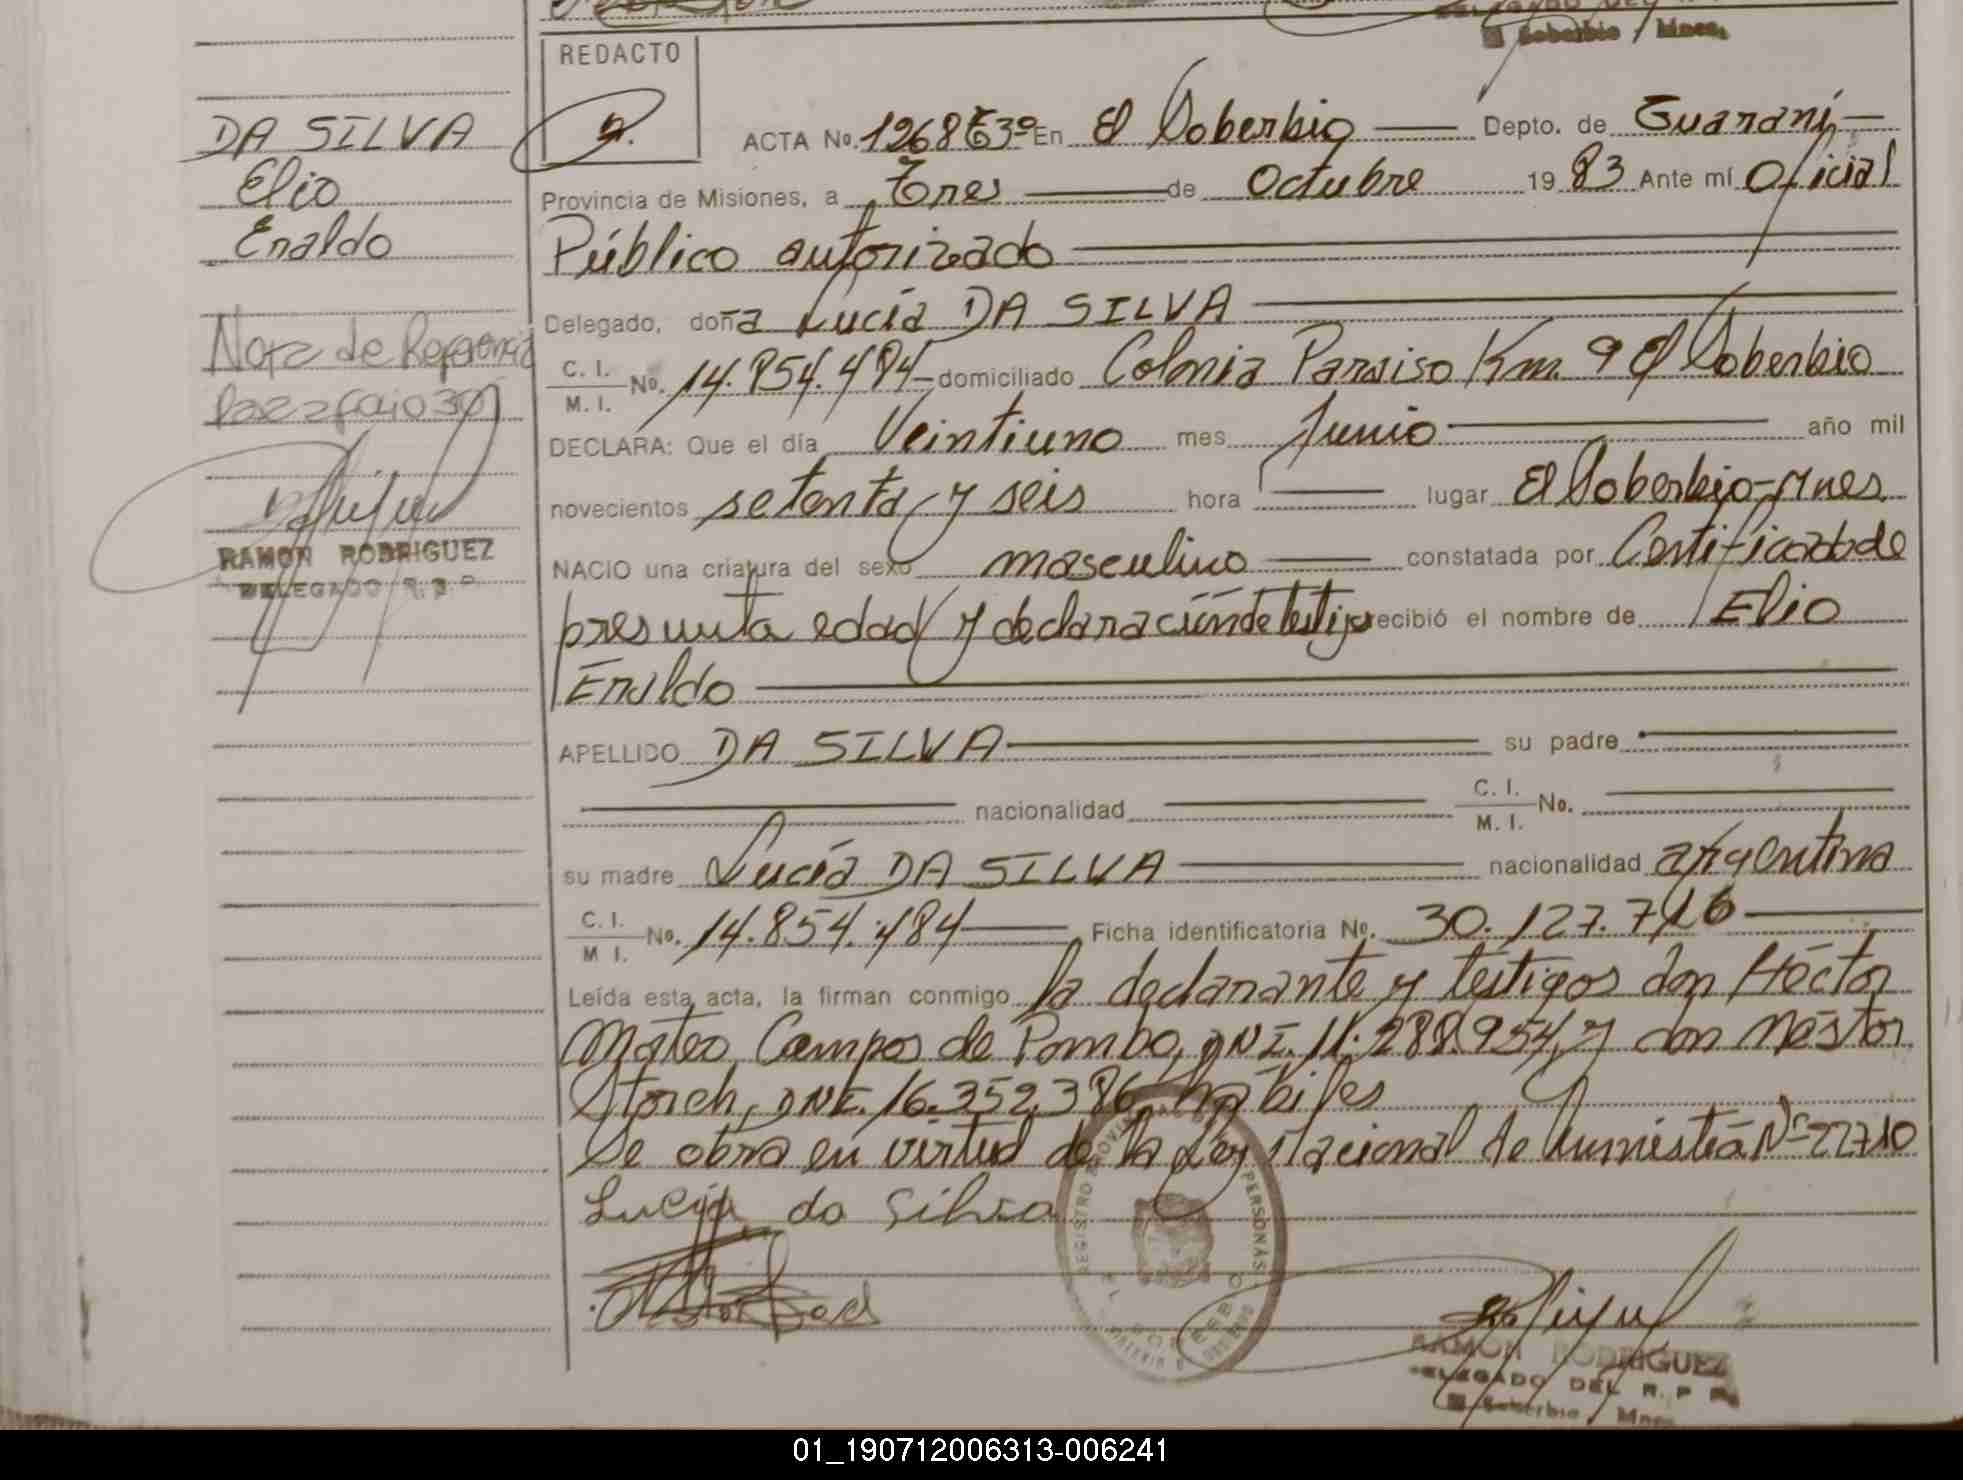 Soberbio, Mnes.
REDACTO
ACTA No. 1268 Tº 3º En El Soberbio Depto. de Guaraní
DA SILVA
Elio
Enaldo
Provincia de Misiones, a Tres de Octubre 1983 Ante mí Oficial
Público autorizado
Delegado, doña Lucía DA SILVA
Nota de Referencia
C. I.
M. I. No. 14.854.484 domiciliado Colonia Paraiso Km. 9 El Soberbio
DECLARA: Que el día Veintiuno mes Junio año mil
novecientos setenta y seis hora lugar El Soberbio-Mnes
RAMON RODRIGUEZ
DELEGADO R.P.P.
NACIO una criatura del sexo masculino constatada por Certificado de
presunta edad y declaración de testigos recibió el nombre de Elio
Enaldo
APELLIDO DA SILVA su padre
nacionalidad C. I.
M. I. No.
su madre Lucía DA SILVA nacionalidad argentina
C. I.
M I. No. 14.854.484 Ficha identificatoria No. 30.127.716
Leída esta acta, la firman conmigo la declarante y testigos don Héctor
Mateo Campos de Pombo, DNI. 11.288.954, y don Néstor
Storch, DNI. 16.352.386, hábiles
Se obra en virtud de la Ley Nacional de Amnistía Nº 22710
Lucia da Silva
REGISTRO PROVINCIAL PERSONAS
RAMON RODRIGUEZ
DELEGADO DEL R. P. P.
El Soberbio, Mnes.
01_190712006313-006241